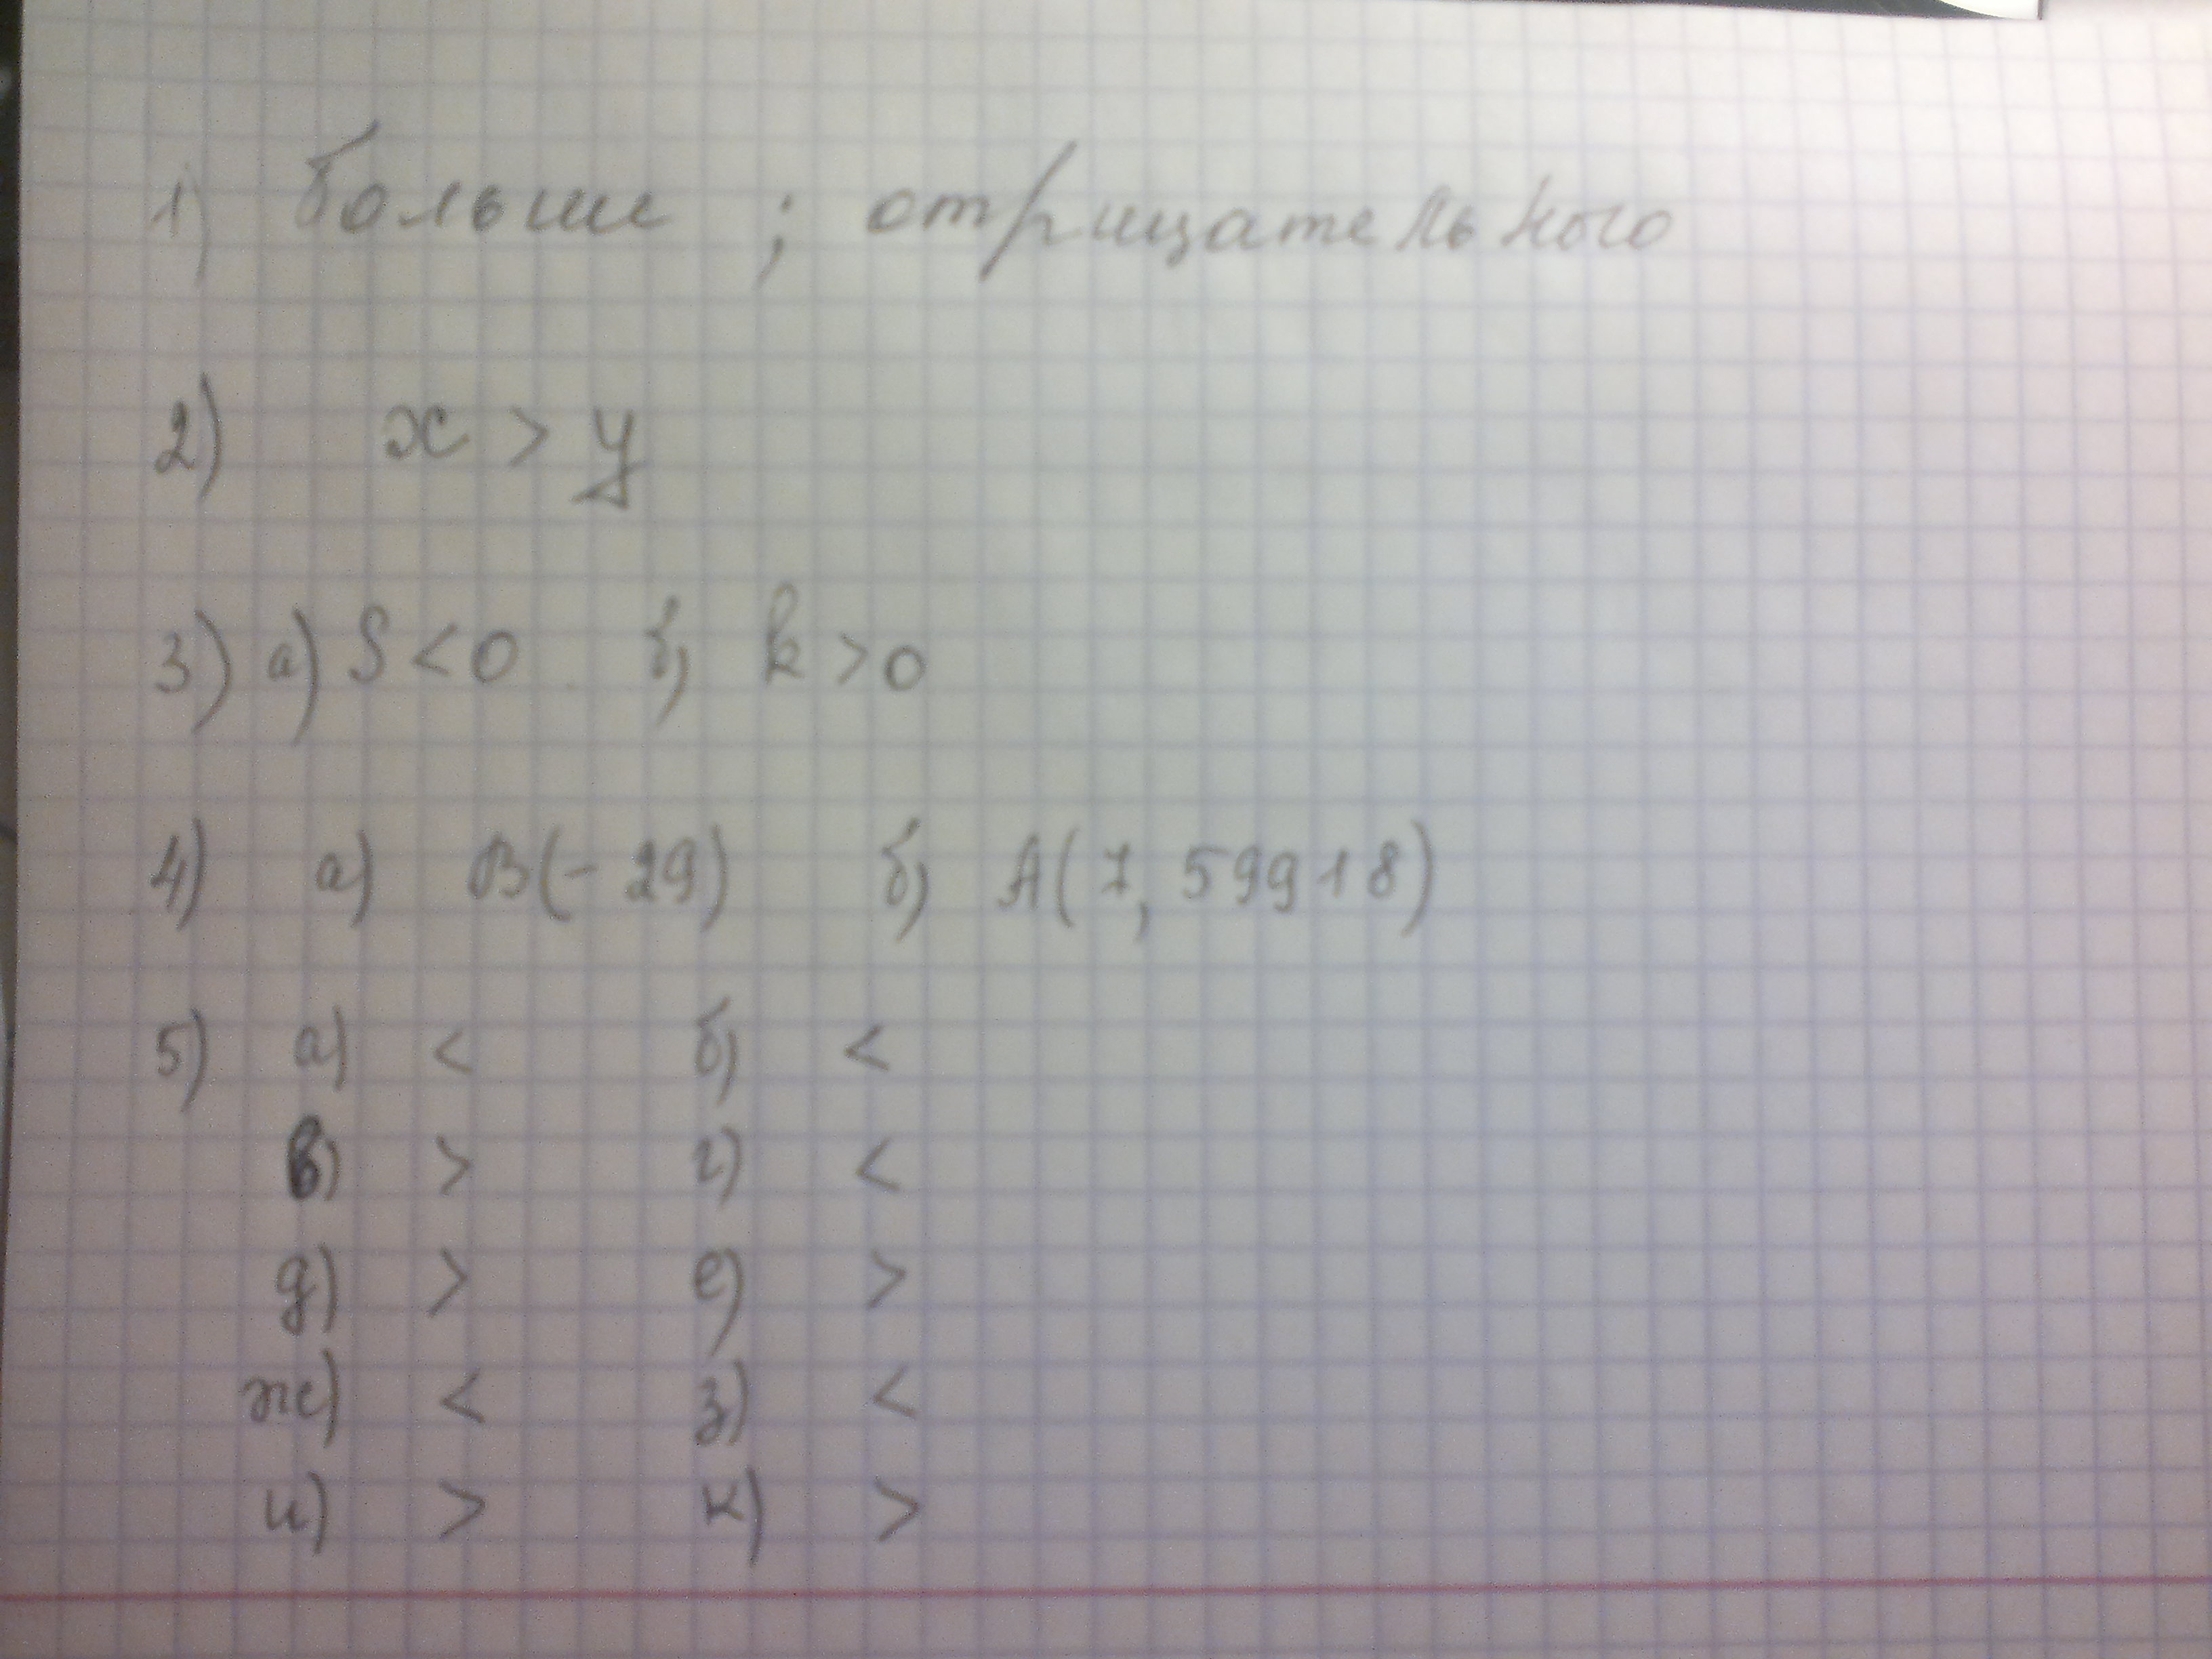 1) больше ; отрицательного
2) x > y
3) а) S < 0 б) k > 0
4) а) B(- 29) б) A(7, 59918)
5) а) < б) <
в) > г) <
д) > е) >
ж) < з) <
и) > к) >